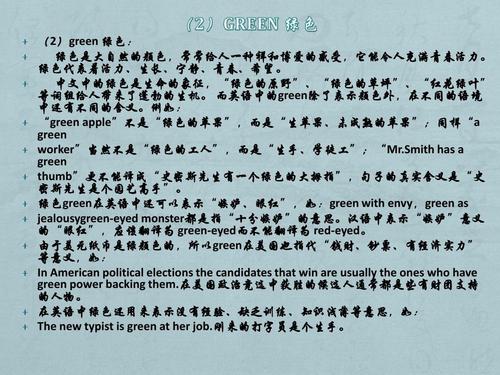 （2）GREEN 绿色
（2）green 绿色：
绿色是大自然的颜色，常常给人一种祥和博爱的感受，它能令人充满青春活力。
绿色代表着活力、生长、宁静、青春、希望。
中文中的绿色是生命的表征，“绿色的原野”、“绿色的草坪”、“红花绿叶”
等词组给人带来了蓬勃的生机。而英语中的green除了表示颜色外，在不同的语境
中还有不同的含义。例如：
“green apple”不是“绿色的苹果”，而是“生苹果、未成熟的苹果”；同样“a
green
worker”当然不是“绿色的工人”，而是“生手、学徒工”；“Mr.Smith has a
green
thumb”更不能译成“史密斯先生有一个绿色的大拇指”，句子的真实含义是“史
密斯先生是个园艺高手”。
绿色green在英语中还可以表示“嫉妒、眼红”，如：green with envy，green as
jealousygreen-eyed monster都是指“十分嫉妒”的意思。汉语中表示“嫉妒”意义
的“眼红”，应该翻译为green-eyed而不能翻译为red-eyed。
由于美元纸币是绿颜色的，所以green在美国也指代“钱财、钞票、有经济实力”
等意义，如：
In American political elections the candidates that win are usually the ones who have
green power backing them.在美国政治竞选中获胜的候选人通常都是些有财团支持
的人物。
在英语中绿色还用来表示没有经验、缺乏训练、知识浅薄等意思，如：
The new typist is green at her job.刚来的打字员是个生手。